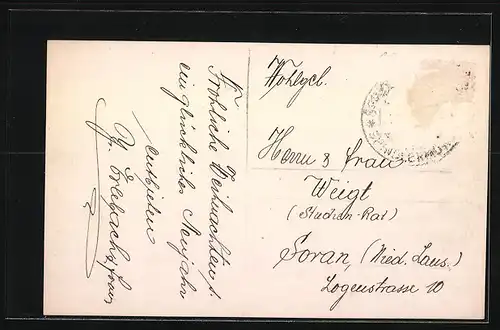 Fröhliche Weihnachten u.
ein glückliches Neujahr
entbieten
Frau
Wohlgeb.
Herrn & Frau
Weigt
(Studien-Rat)
Soran, (Nied. Laus.)
Logenstrasse 10